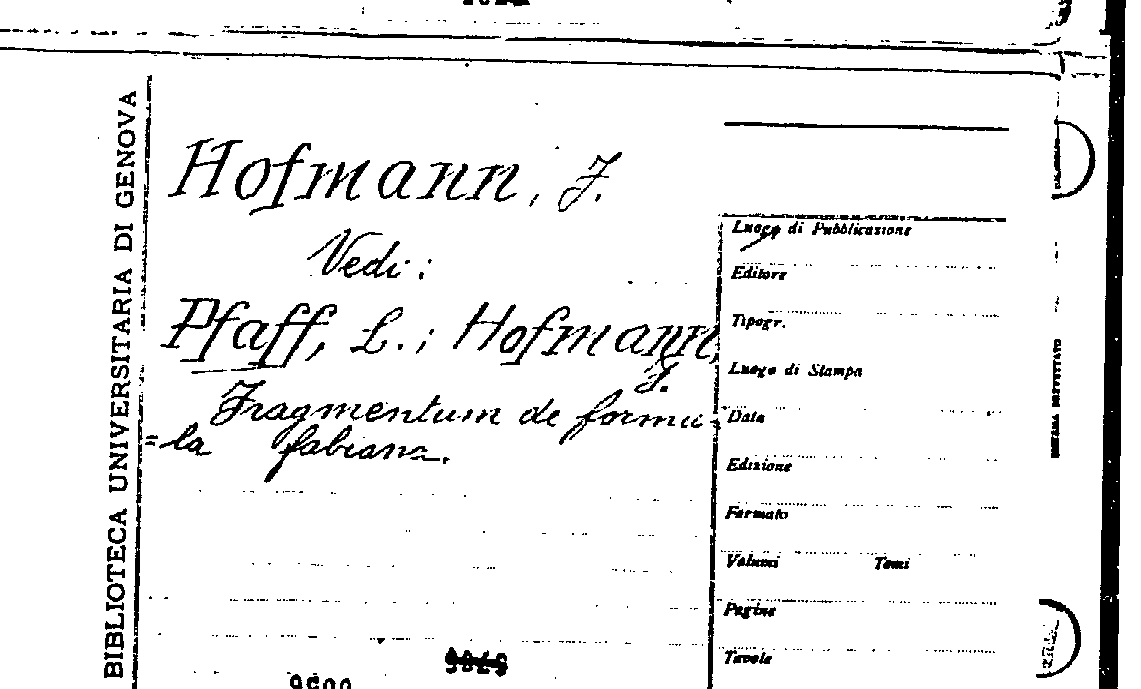 BIBLIOTECA UNIVERSITARIA DI GENOVA
Hofmann, F.
Vedi:
Pfaff, L.; Hofmann,
F.
Fragmentum de formu=
=la fabiana.
Luogo di Pubblicazione
Editore
Tipogr.
Luogo di Stampa
Data
Edizione
Formato
Volumi Tomi
Pagine
Tavole